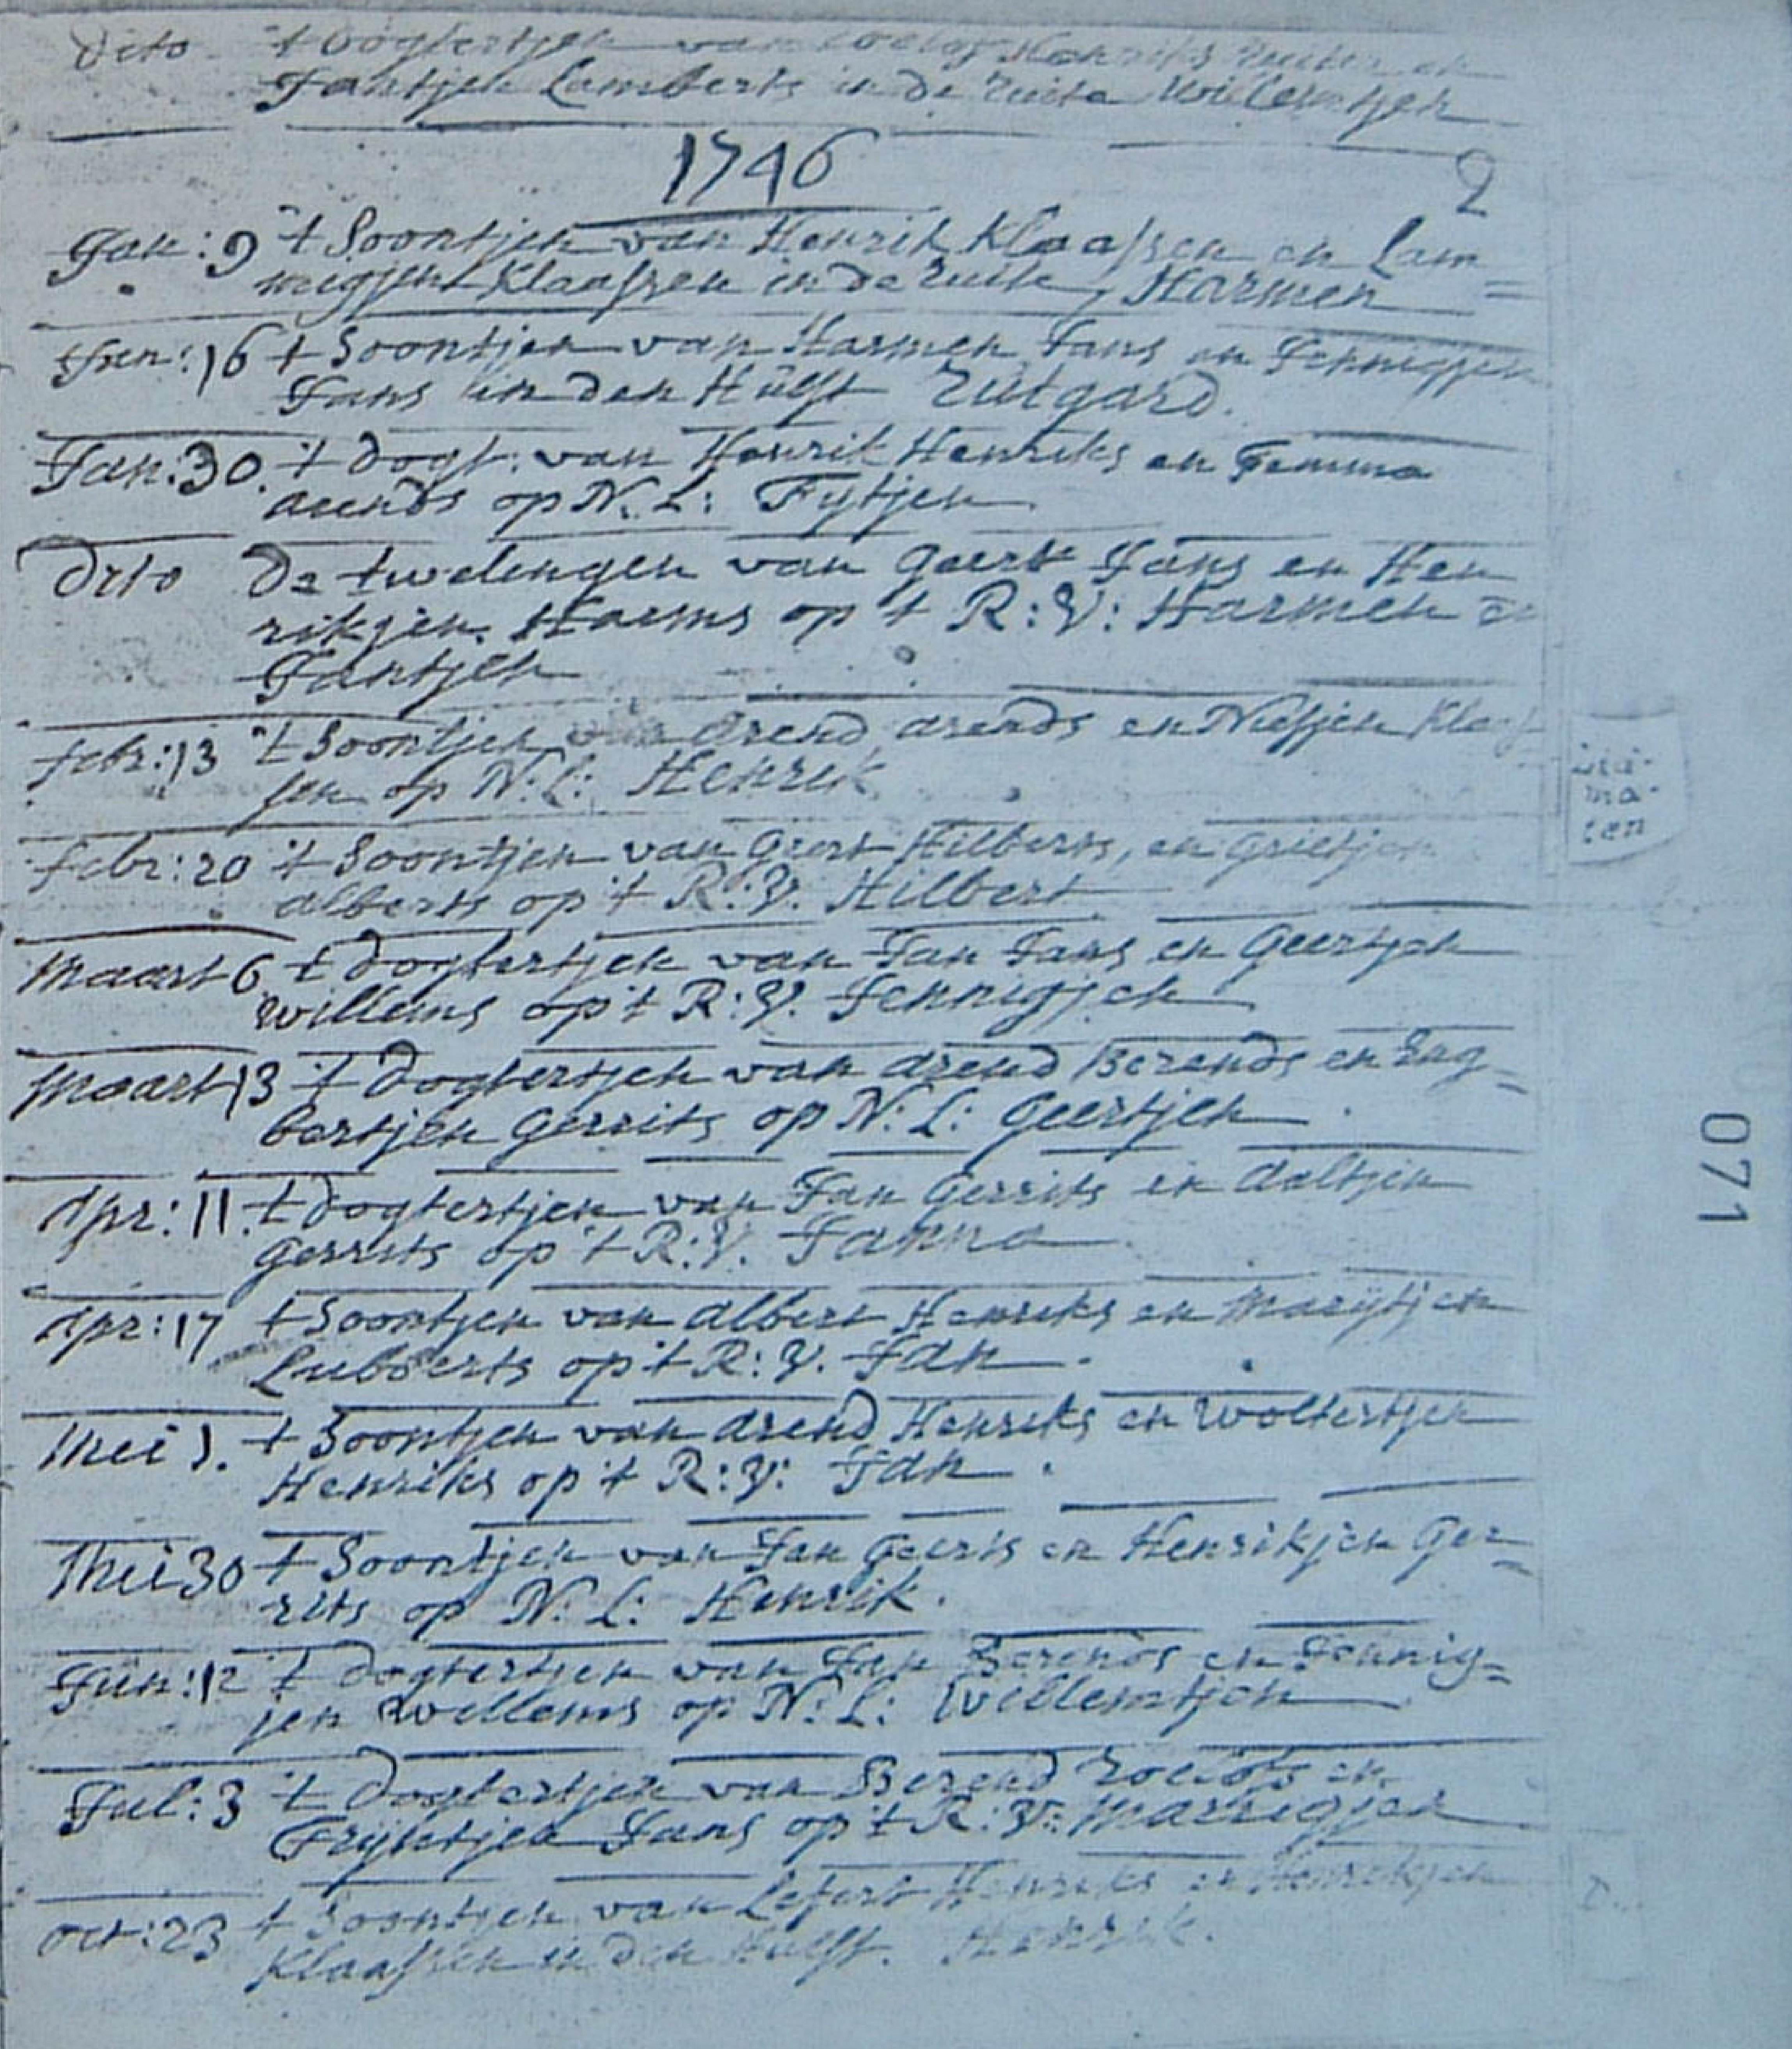 dito 't dogtertjen van Roelof Henriks Ruiter en
Jantjen Lamberts in de Ruite Willemtjen
1746
2
Jan: 9 't Soontjen van Henrik Klaassen en Lam=
megjen Klaassen in de Ruite, Harmen
Jan: 16 't Soontjen van Harmen Jans en Jennigjen
Jans in den Hulst Rutgard.
Jan: 30. 't dogt. van Henrik Henriks en Femma
arends op N. L: Fytjen.
Dito De twelingen van Geert Jans en Hen
rikjen Harms op 't R: V: Harmen en
Jantjen
febr: 13 't Soontjen van Arend arends en Niesjen Klaas
sen op N: L: Henrik
febr: 20 't Soontjen van Geert Hilberts, en Grietjen
alberts op 't R: V. Hilbert
Maart 6 't dogtertjen van Jan Jans en Geertjen
Willems op 't R: V. Jennigjen
Maart 13 't dogtertjen van Arend Berends en Eng=
bertjen Gerrits op N: L: Geertjen.
Apr: 11. 't dogtertjen van Jan Gerrits en Aaltjen
Gerrits op 't R: V. Janna
Apr: 17 't Soontjen van Albert Henriks en Marijtjen
Lubberts op 't R: V. Jan.
Mei 1. 't Soontjen van Arend Henriks en Woltertjen
Henriks op 't R: V: Jan.
Mei 30 't Soontjen van Jan Geerts en Henrikjen Ger=
rits op N: L: Henrik.
Jun: 12 't dogtertjen van Jan Berends en Jennig=
jen Willems op N: L: Willemtjen
Jul: 3 't Dogtertjen van Berend Roelofs en
Trijntjen Jans op 't R: V: Marrigjen
Oct: 23 't Soontjen van Lefert Henriks en Henrikjen
Klaassen in den Hulst. Henrik.
071